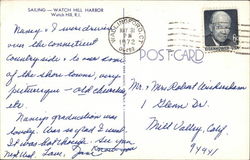 SAILING — WATCH HILL HARBOR
Watch Hill, R.I.
Nancy & I were driving
over the Connecticut
Countryside & saw some
of the shore towns, very
picturesque - old churches
etc.
Nancy's graduation was
lovely. Was so glad I went.
I was hot though. See you
next wk. Love,
MAY 31
PM
1972
POST CARD
EISENHOWER USA
Mr. & Mrs. Robert
1 Glenn Dr.
Mill Valley, Calif.
94941